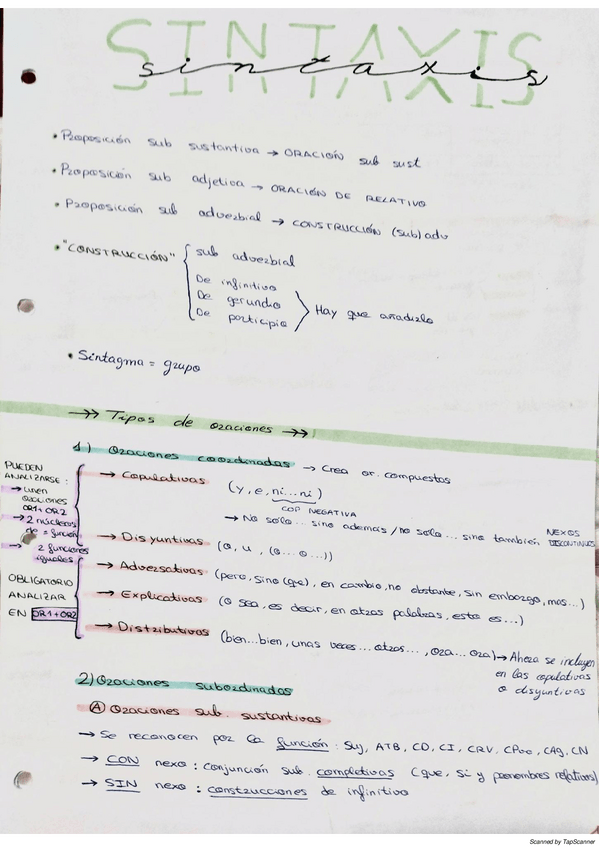 SINTAXIS
sintaxis
• Proposición sub sustantiva → ORACIÓN sub sust
• Proposición sub adjetiva → ORACIÓN DE RELATIVO
• Proposición sub adverbial → CONSTRUCCIÓN (sub) adv
• "CONSTRUCCIÓN"
sub adverbial
De infinitivo
De gerundio
De participio
Hay que añadirlo
• Sintagma = grupo
→» Tipos de oraciones →»
1) Oraciones coordinadas → Crea or. compuestas
PUEDEN
ANALIZARSE:
→ unen
oraciones
OR1 + OR2
→ 2 núcleos
de = función
→ 2 funciones
iguales
→ Copulativas (y, e, ni...ni)
COP NEGATIVA
→ No solo... sino además / no solo... sino también.
NEXOS
DISCONTINUOS
→ Disyuntivas (o, u, (o...o...))
OBLIGATORIO
ANALIZAR
EN OR1+OR2
→ Adversativas (pero, sino (que), en cambio, no obstante, sin embargo, mas...)
→ Explicativas (o sea, es decir, en otras palabras, esto es...)
→ Distributivas (bien...bien, unas veces...otras..., ora...ora) → Ahora se incluyen
en las copulativas
o disyuntivas
2) Oraciones subordinadas
Ⓐ Oraciones sub. sustantivas
→ Se reconocen por la función: Suj, ATB, CD, CI, CRV, CPvo, CAg, CN
→ CON nexo: conjunción sub. completivas (que, si y pronombres relativos)
→ SIN nexo: construcciones de infinitivo
Scanned by TapScanner